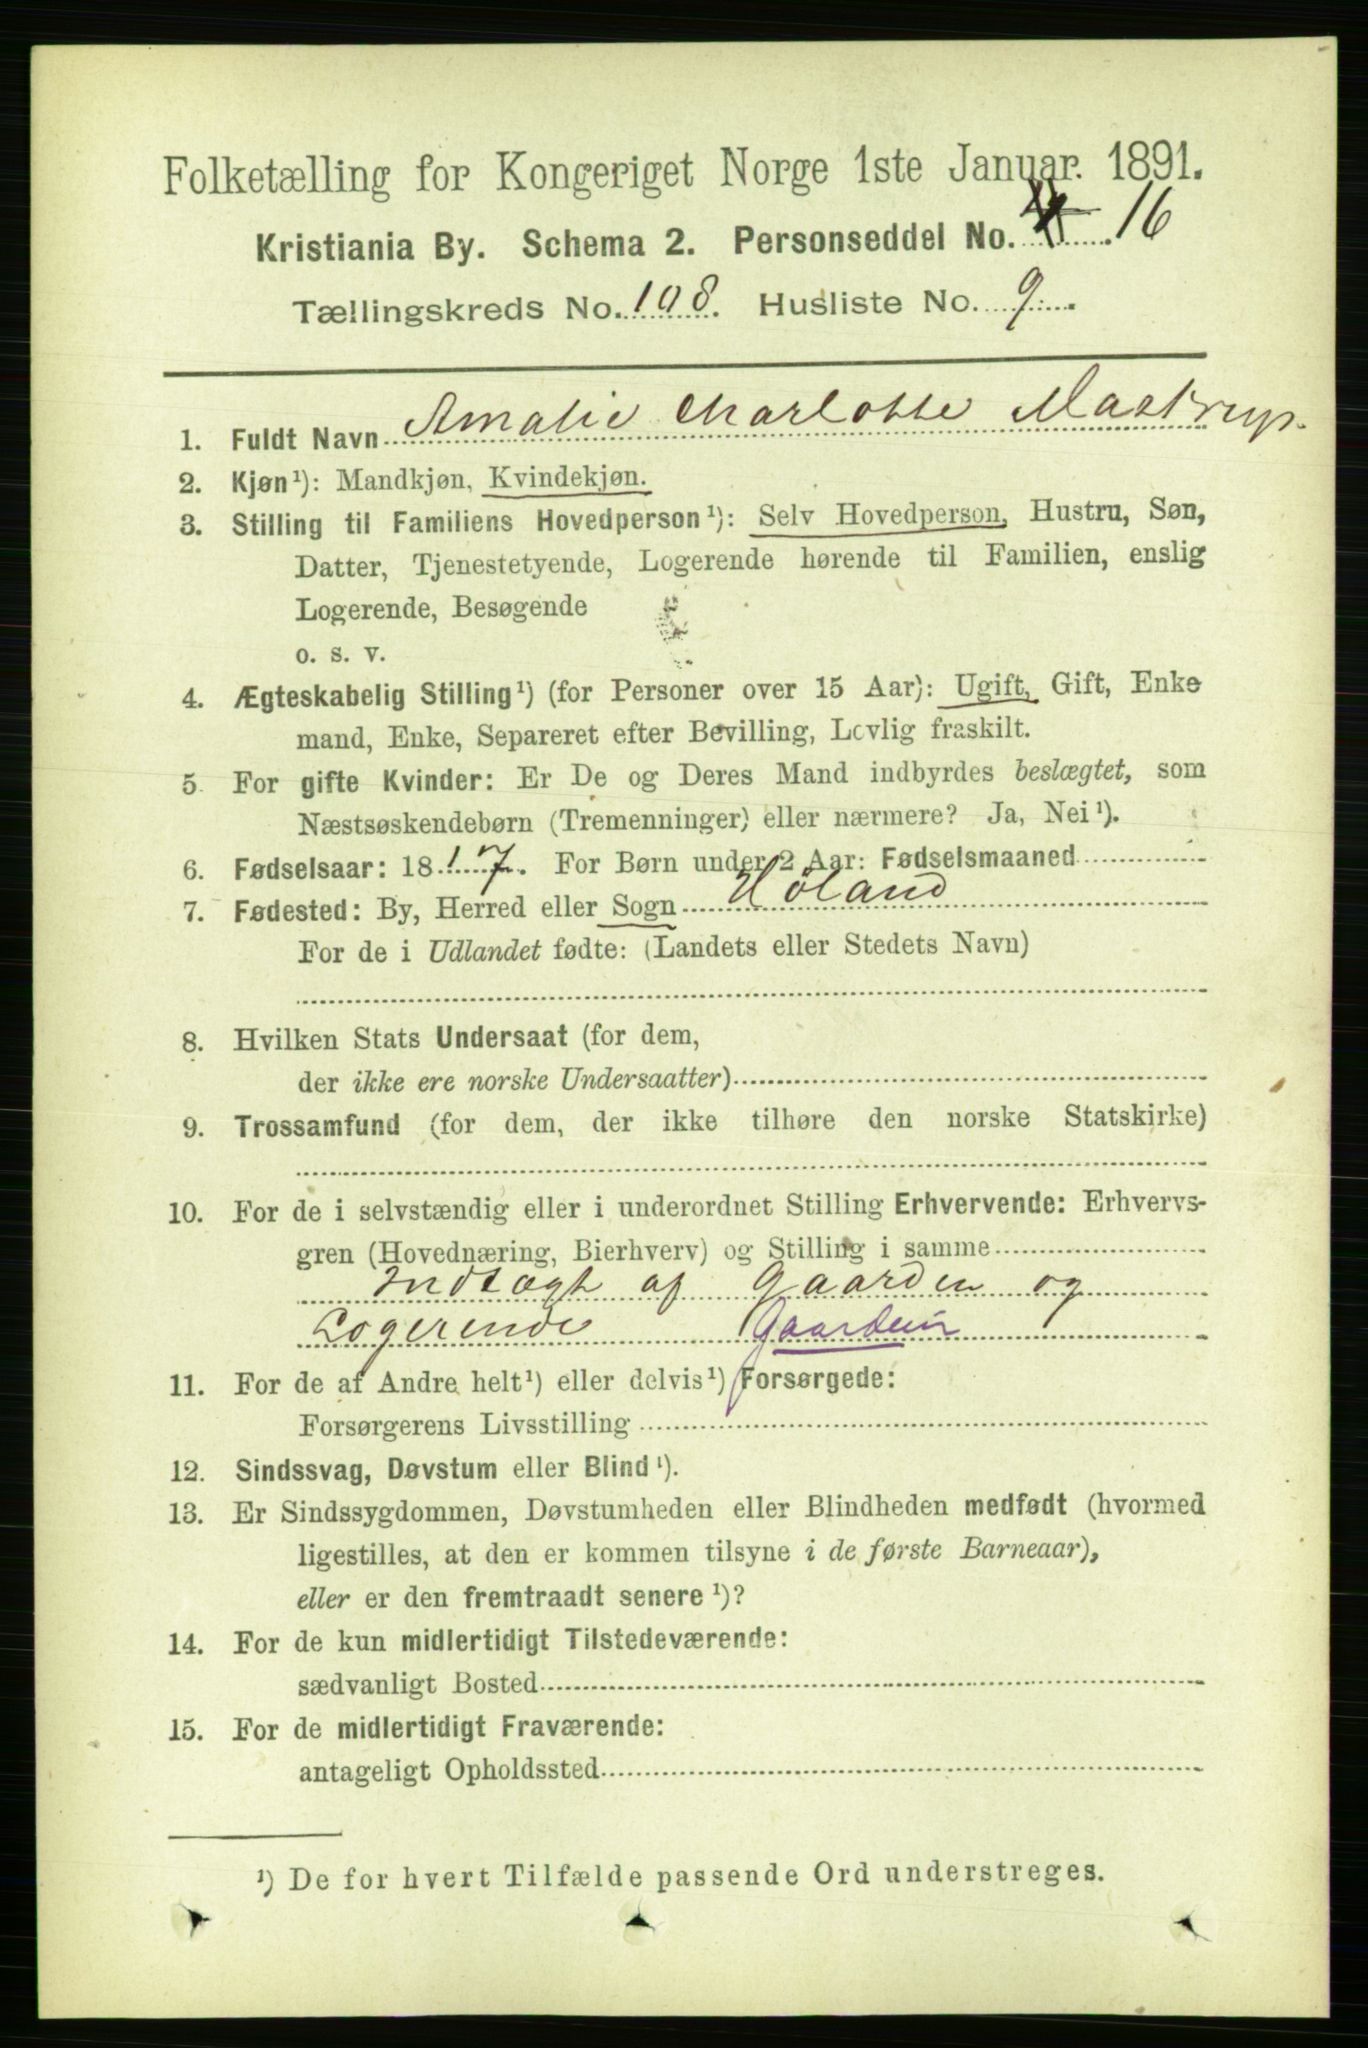 Folketælling for Kongeriget Norge 1ste Januar. 1891.
Kristiania By. Schema 2. Personseddel No. 16
Tællingskreds No. 108. Husliste No. 9.
1. Fuldt Navn Amalie Charlotte Mastrup.
2. Kjøn¹): Mandkjøn, Kvindekjøn.
3. Stilling til Familiens Hovedperson¹): Selv Hovedperson, Hustru, Søn,
Datter, Tjenestetyende, Logerende hørende til Familien, enslig
Logerende, Besøgende
o. s. v.
4. Ægteskabelig Stilling¹) (for Personer over 15 Aar): Ugift, Gift, Enke
mand, Enke, Separeret efter Bevilling, Lovlig fraskilt.
5. For gifte Kvinder: Er De og Deres Mand indbyrdes beslægtet, som
Næstsøskendebørn (Tremenninger) eller nærmere? Ja, Nei¹).
6. Fødselsaar: 1817. For Børn under 2 Aar: Fødselsmaaned
7. Fødested: By, Herred eller Sogn Höland
For de i Udlandet fødte: (Landets eller Stedets Navn)
8. Hvilken Stats Undersaat (for dem,
der ikke ere norske Undersaatter)
9. Trossamfund (for dem, der ikke tilhøre den norske Statskirke)
10. For de i selvstændig eller i underordnet Stilling Erhvervende: Erhvervs-
gren (Hovednæring, Bierhverv) og Stilling i samme
Indtægt af Gaarden og
Logerende Gaardeier
11. For de af Andre helt¹) eller delvis¹) Forsørgede:
Forsørgerens Livsstilling
12. Sindssvag, Døvstum eller Blind¹).
13. Er Sindssygdommen, Døvstumheden eller Blindheden medfødt (hvormed
ligestilles, at den er kommen tilsyne i de første Barneaar),
eller er den fremtraadt senere¹)?
14. For de kun midlertidigt Tilstedeværende:
sædvanligt Bosted
15. For de midlertidigt Fraværende:
antageligt Opholdssted
¹) De for hvert Tilfælde passende Ord understreges.